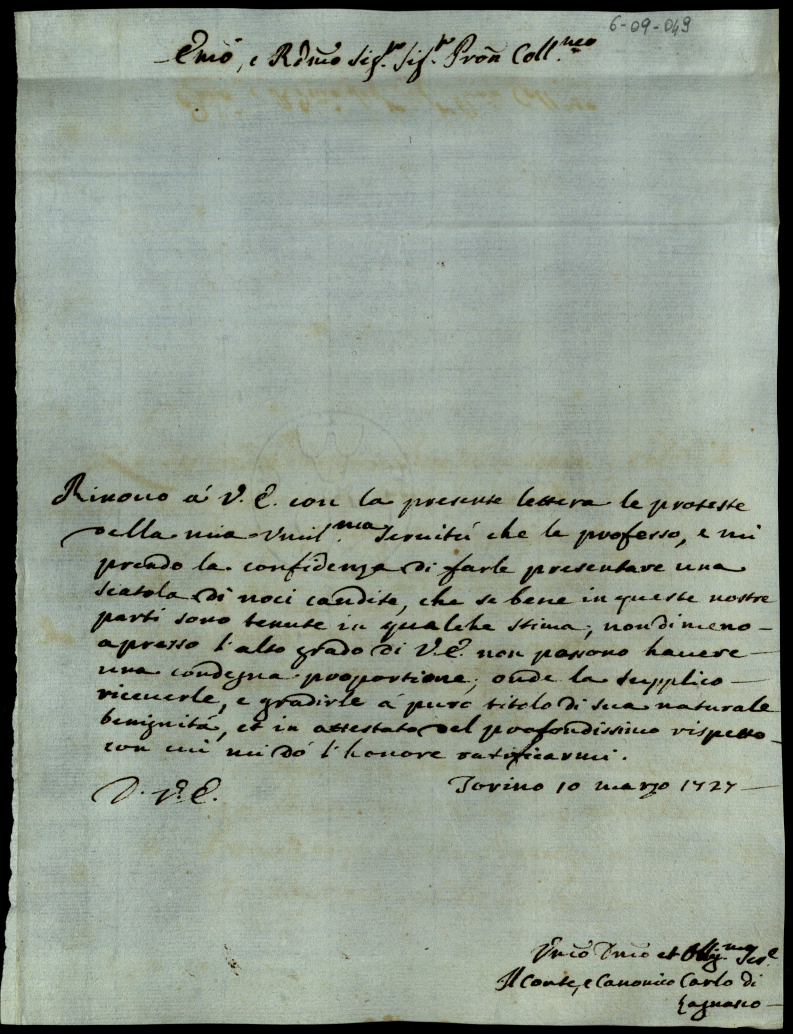 6-09-049
Emõ, e Rdmõ Sig.r Sig.r Pron̄ Coll.mo
Rinouo á V. E. con la presente lettera le proteste
della mia vmil.ma Seruitú che le professo, e mi
prendo la confidenza di farle presentare una
scatola di noci candite, che se bene in queste nostre
parti sono tenute in qualche stima, nondimeno
apresso l'alto grado di V.E. non possono hauere
una condegna proportione; onde la supplico
riceuerle, e gradirle á puro titolo di sua naturale
benignitá, et in attestato del profondissimo rispetto
con cui mi dó l'honore ratificarmi.
D. V. E.
Torino 10 marzo 1727
Dmõ et Obblig.mo Ser.e
Il Conte, e Canonico Carlo di
Lagnasco